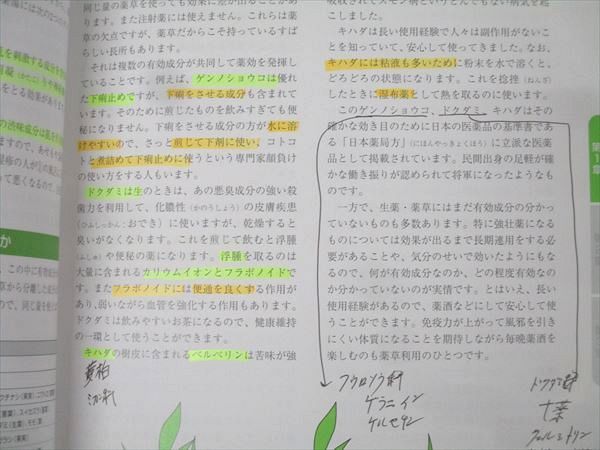 同じ量の薬草を使っても効果に差が出ることがあ
ります。また注射薬には使えません。これらは薬
草の欠点ですが、薬草だからこそ持っているすば
らしい長所もあります。
それは複数の有効成分が共同して薬効を発揮し
ていることです。例えば、ゲンノショウコは優れ
た下痢止めですが、下痢をさせる成分も含まれて
います。そのために煎じたものを飲みすぎても便
秘になりません。下痢をさせる成分の方が水に溶
けやすいので、さっと煎じて下剤に使い、コトコ
トと煮詰めて下痢止めに使うという専門家顔負け
の使い方をする人もいます。
ドクダミは生のときは、あの悪臭成分の強い殺
菌力を利用して、化膿性（かのうしょう）の皮膚疾患
（ひふしっかん：おでき）に使いますが、乾燥すると
臭いがなくなります。これを煎じて飲むと浮腫
（ふしゅ）や便秘の薬になります。浮腫を取るのは
大量に含まれるカリウムイオンとフラボノイドで
す。またフラボノイドには便通を良くする作用が
あり、弱いながら血管を強化する作用もあります。
ドクダミは飲みやすいお茶になるので、健康維持
の一環として使うことができます。
キハダの樹皮に含まれるベルベリンは苦味が強
黄柏
ミカン科
こしました。
キハダは長い使用経験で人々は副作用がないこ
とを知っていて、安心して使ってきました。なお、
キハダには粘液も多いために粉末を水で溶くと、
どろどろの状態になります。これを捻挫（ねんざ）
したときに湿布薬として熱を取るのに使います。
このゲンノショウコ、ドクダミ、キハダはその
確かな効き目のために日本の医薬品の基準書であ
る「日本薬局方」（にほんやっきょくほう）に立派な医薬
品として掲載されています。民間出身の足軽が確
かな働き振りが認められて将軍になったようなも
のです。
一方で、生薬・薬草にはまだ有効成分の分かっ
ていないものも多数あります。特に強壮薬になる
ものについては効果が出るまで長期連用をする必
要があることや、気分のせいで効いたようにもな
るので、何が有効成分なのか、どの程度有効なの
か分かっていないのが実情です。とはいえ、長い
使用経験があるので、薬酒などにして安心して使
うことができます。免疫力が上がって風邪を引き
にくい体質になることを期待しながら毎晩薬酒を
楽しむのも薬草利用のひとつです。
フウロソウ科
ゲラニイン
ケルセチン
ドクダミ科
十薬
クェルシトリン
第1章